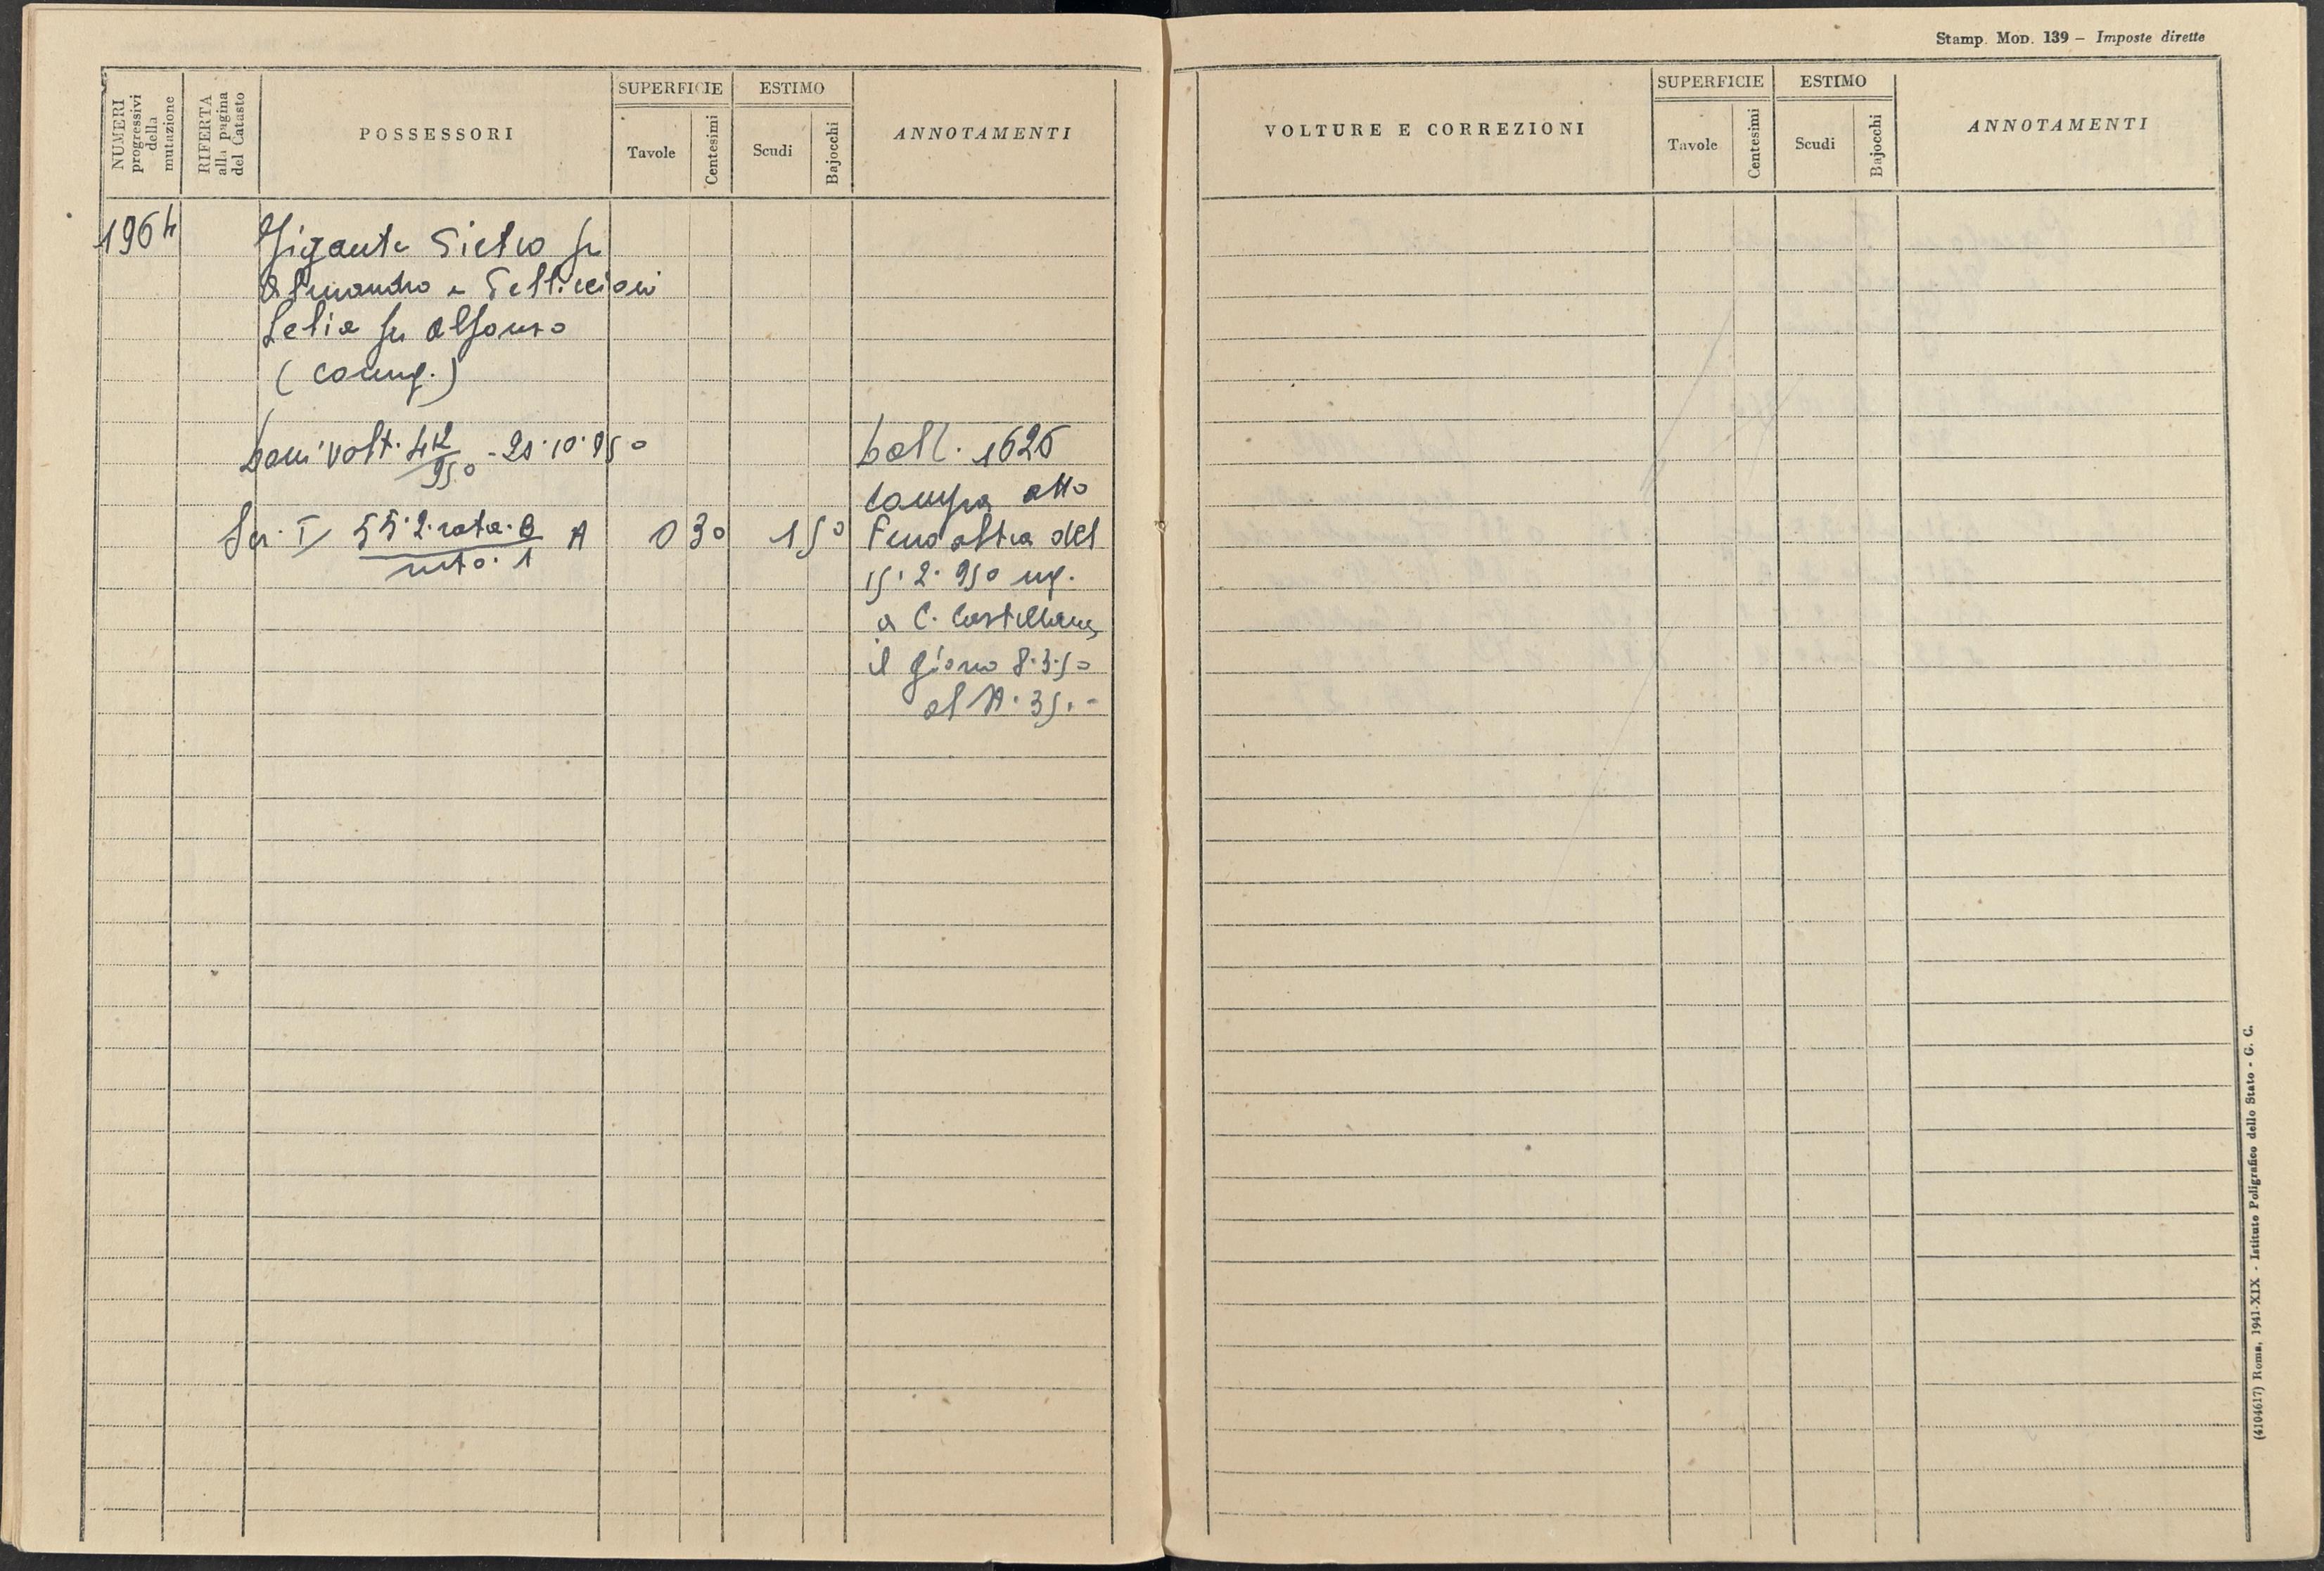 NUMERI
progressivi
della
mutazione
RIFERTA
alla pagina
del Catasto
POSSESSORI
SUPERFICIE
Tavole
Centesimi
ESTIMO
Scudi
Bajocchi
ANNOTAMENTI
1964
Gigante Pietro fu
Armando e Pelliccioni
Lelia fu Alfonso
(coniug.)
volt. 412/950 - 20.10.950
Sez. I 55.2.rata.B A 0 30 1 50
1
boll. 1626
Compra atto
Fenoaltea del
15.2.950 reg.
a C. Castellana
il giorno 8.3.50
al N. 35.-
Stamp. Mod. 139 – Imposte dirette
VOLTURE E CORREZIONI
SUPERFICIE
Tavole
Centesimi
ESTIMO
Scudi
Bajocchi
ANNOTAMENTI
(4104617) Roma, 1941-XIX - Istituto Poligrafico dello Stato - G. C.